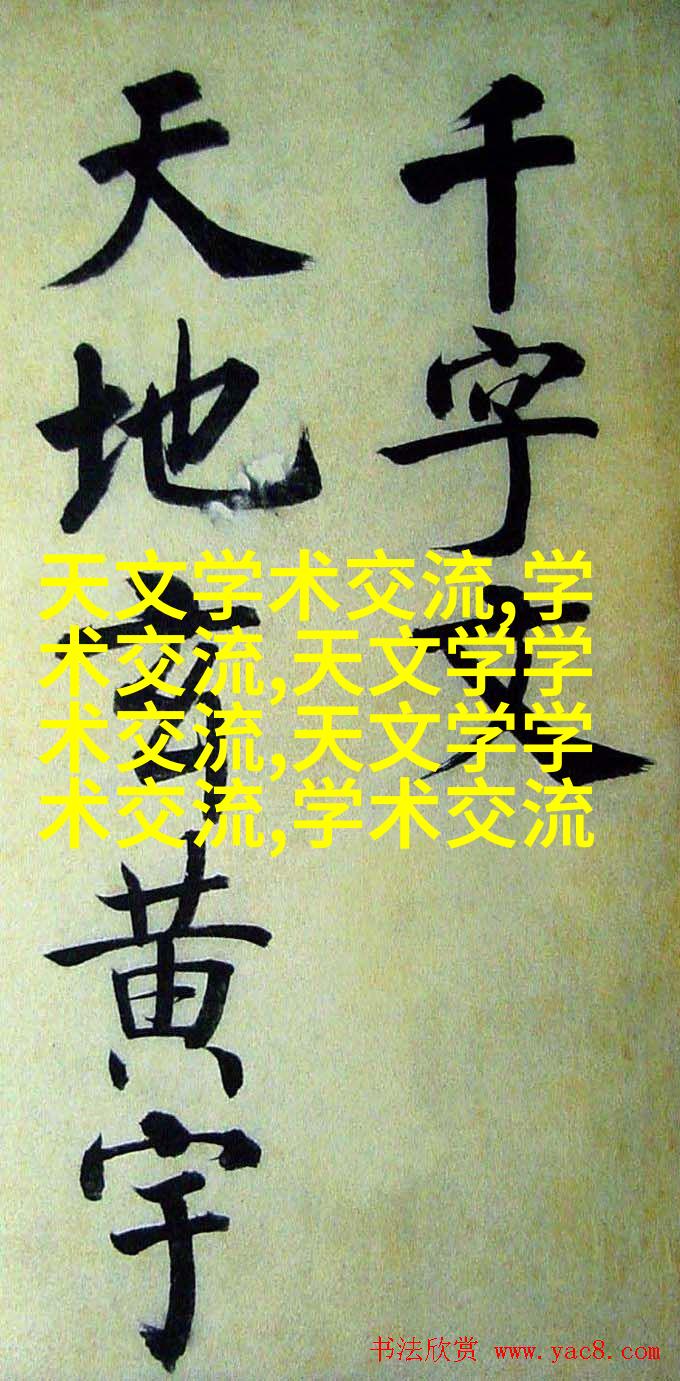 千字文
天地黄宇
天文学术交流,学
术交流,天文学学
术交流,天文学学
术交流,学术交流
书法欣赏 www.yac8.com